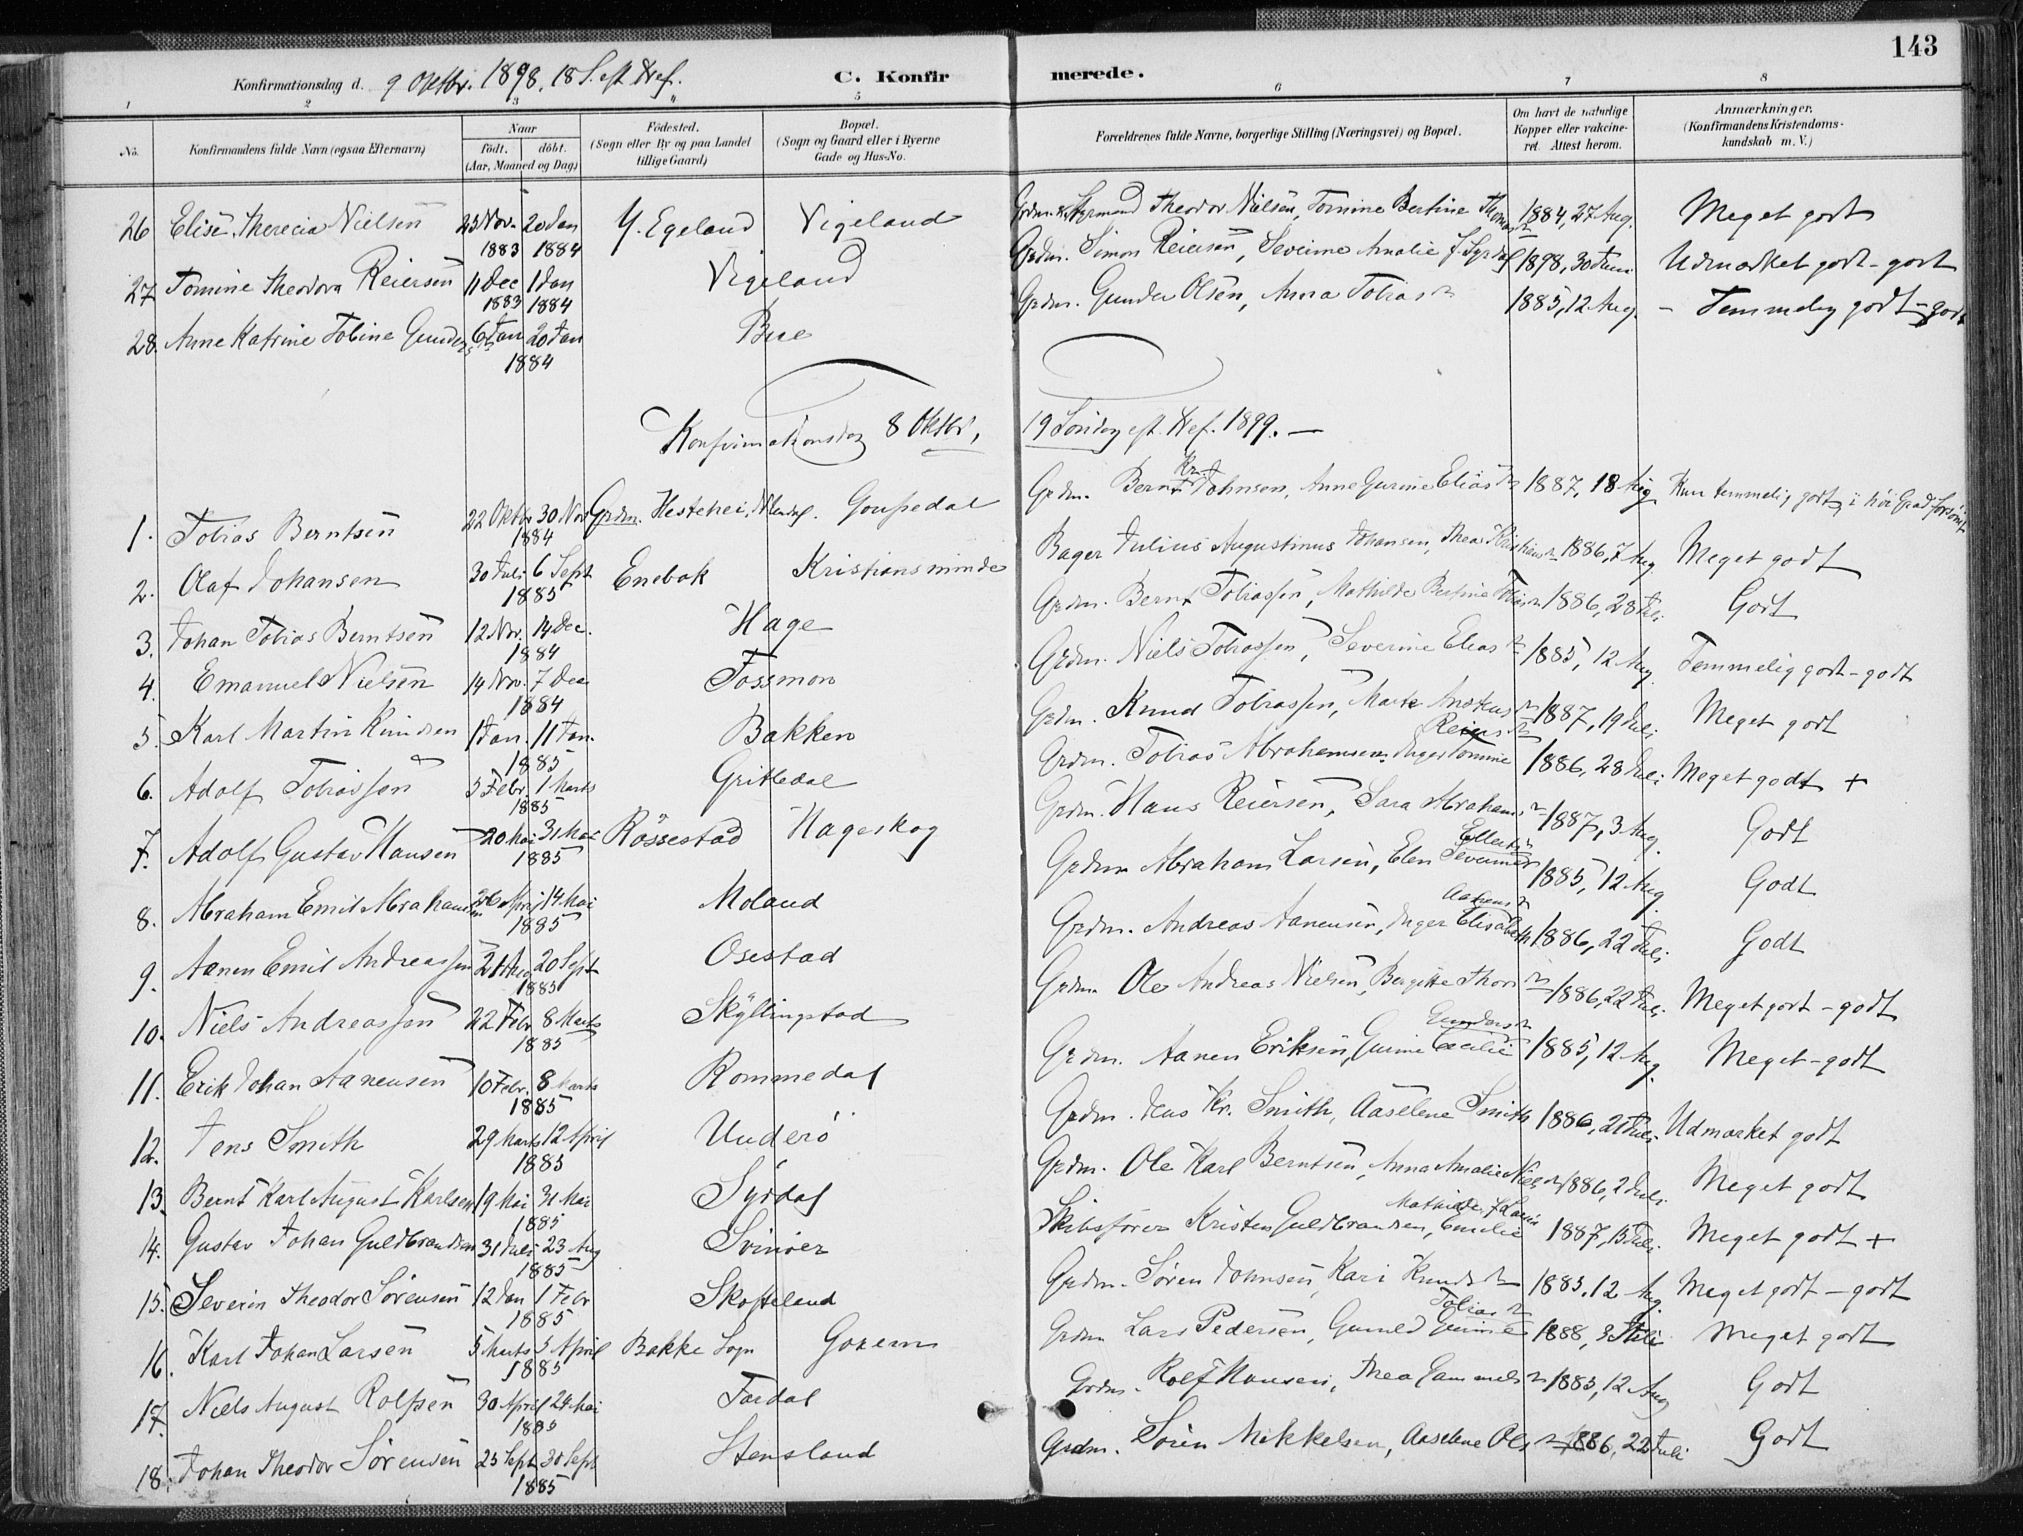 143
Konfirmationsdag d. 9 Oktbr. 1898. 18 S. eft. Tref.
C. Konfirmerede.
1 2 3 4 5 6 7 8
No. Konfirmandens fulde Navn (ogsaa Efternavn) Naar født. døbt. (Aar, Maaned og Dag) Fødested. (Sogn eller By og paa Landet tillige Gaard) Bopæl. (Sogn og Gaard eller i Byerne Gade og Hus-No. Forældrenes fulde Navne, borgerlige Stilling (Næringsvei) og Bopæl. Om havt de naturlige Kopper eller vakcineret. Attest herom. Anmærkninger. (Konfirmandens Kristendomskundskab m. V.)
26 Elise Therecia Nielsen 23 Nov. 1883 20 Jan 1884 Y. Egeland Vigeland Theodor Nielsen, Tomine Bertine 1884, 27 Aug. Meget godt
27 Tomine Theodora Reiersen 11 Dec 1883 1 Jan 1884 Vigeland Grdm. Simon Reiersen, Severine Amalie f. Syrdal 1898, 30 Juni Udmærket godt - godt
28. Anne Katrine Tobine Gunders 6 Jan 20 Jan 1884 Bue Grdm. Gunder Olsen, Anna Tobiasd 1885, 12 Aug. - Temmelig godt - godt
Konfirmationsdag 8 Oktbr, 19 Søndag eft. Tref. 1899. —
1. Tobias Berntsen 22 Oktbr 30 Nov 1884 Grdm. Hestehei, Gousedal Grdm. Bernt Kr. Johnsen, Anne Gurine Eliasd 1887, 18 Aug Kun temmelig godt, i høi Grad forsømt
2. Olaf Johansen 30 Juli 6 Sept 1885 Enebak Kristiansminde Bager Julius Augustinus Johansen, Thea Kristians 1886, 7 Aug. Meget godt
3. Johan Tobias Berntsen 12 Nov. 14 Dec. 1884 Hage Grdm. Bernt Tobiassen, Mathilde Bertine Tobiasd 1886, 28 Juli Godt
4. Emanuel Nielsen 14 Nov. 7 Dec 1884 Fossmon Grdm. Niels Tobiassen, Severine Eliasd 1885, 12 Aug. Temmelig godt - godt
5. Karl Martin Knudsen 1 Jan. 11 Jan. 1885 Bakken Grdm. Knud Tobiassen, 1887, 19 Juli Meget godt
6. Adolf Tobiassen 3 Febr. 1 Marts 1885 Grittedal Grdm. Tobias Abrahamsen, Inger Tomine Reiersd 1886, 28 Juli Meget godt +
7. Adolf Gustav Hansen 20 Mai 31 Mai 1885 Røssestad Hageskog Grdm. Hans Reiersen, Sara Abrahams 1887, 3 Aug. Godt
8. Abraham Emil Abrahamsen 26 April 14 Mai 1885 Moland Grdm Abraham Larsen, Elen Severine 1885, 12 Aug Godt
9. Aanen Emil Andreassen 21 Aug 20 Sept 1885 Osestad Grdm. Andreas Aanensen, Inger Elisabeth Aanensd 1886, 22 Juli Godt
10. Niels Andreassen 22 Febr 8 Marts 1885 Skyllingstad Grdm Ole Andreas Nielsen, Bergitte Thorsd 1886, 22 Juli Meget godt - godt
11. Erik Johan Aanensen 10 Febr. 8 Marts 1885 Rommedal Grdm. Aanen Eriksen, Gurine Cecilie Gundersd 1885, 12 Aug. Meget - godt
12. Jens Smith 29 Marts 12 April 1885 Underø Grdm. Jens Kr. Smith, Aaselene Smith 1886, 21 Juli Udmærket godt
13. Bernt Karl August Karlsen 19 Mai 31 Mai 1885 Syrdal Grdm. Ole Karl Berntsen, Anna Amalie Nielsd 1886, 2 Juli Meget godt
14. Gustav Johan Guldbrandsen 31 Juli 23 Aug 1885 Svinøer Skibsfører Kristen Guldbrandsen, Emilie Mathilde 1887, 13 Juli Meget godt +
15. Severin Theodor Sørensen 12 Jan 1 Febr 1885 Skofteland Grdm. Søren Johnsen, Kari Knudsd 1885, 12 Aug. Meget godt - godt
16. Karl Johan Larsen 5 Marts 5 April 1885 Bakke Sogn Grdm Lars Pedersen, Gurine Tobiasd 1888, 3 Juli Meget godt
17. Niels August Rolfsen 30 April 24 Mai 1885 Fardal Grdm. Rolf Hansen, Thea Gammelsd 1885, 12 Aug Godt
18. Johan Theodor Sørensen 25 Sept 30 Sept 1885 Stensland Grdm. Søren Mikkelsen, Aaselene Olsd 1886, 22 Juli Godt